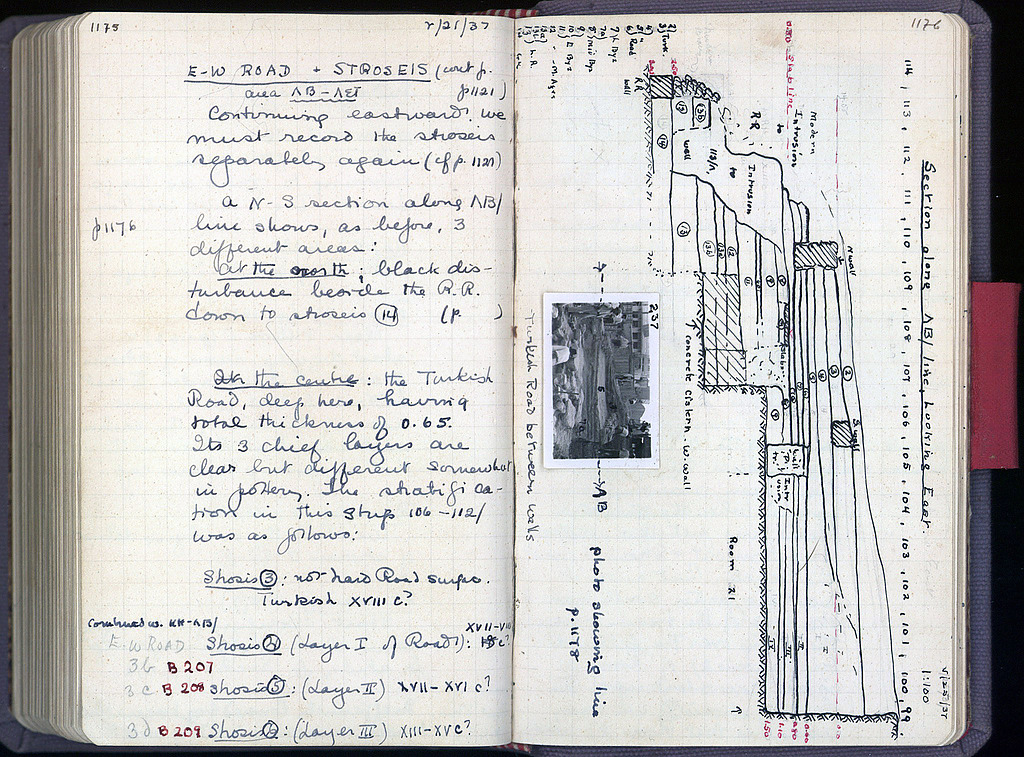 1175
V/21/37
E-W ROAD + STROSEIS (cont p.
area ΛΒ-ΛΣΤ p1121)
Continuing eastward, we
must record the stroseis
separately again (cf p. 1121)
p1176
a N-S section along ΛΒ/
line shows, as before, 3
different areas:
At the north; black dis-
turbance beside the R.R.
down to stroseis 14 (p. )
In the centre: the Turkish
Road, deep here, having
total thickness of 0.65.
Its 3 chief layers are
clear but different somewhat
in pottery. The stratifica-
tion in this strip 106-112/
was as follows:
Strosis 3: not hard Road surface.
Turkish XVIII c?
Combined w. ΚΗ-ΛΒ/
E.W ROAD Strosis 4 (Layer I of Road): XVII-VIII c?
3b B 207
3c B 208 Strosis 5: (Layer II) XVII-XVI c?
3d B 209 Strosis 6: (Layer III) XIII-XV c?
1176
V/25/37
Section along ΛΒ/ line, Looking East.
1:100
114, 113, 112, 111, 110, 109, 108, 107, 106, 105, 104, 103, 102, 101, 100, 99
Modern
Intrusion
to
R.R.
Intrusion
to
wall
N wall
S. wall
2
3
4
5
11
12
13
14
concrete cistern. w. wall
Room 21
Turkish Road between walls.
237
ΛΒ
photo showing line
p. 1178
3) Turk.
6) Road
7) L Byz
8) Mid Byz
11) E Byz
13) L.R.
R.R.
wall